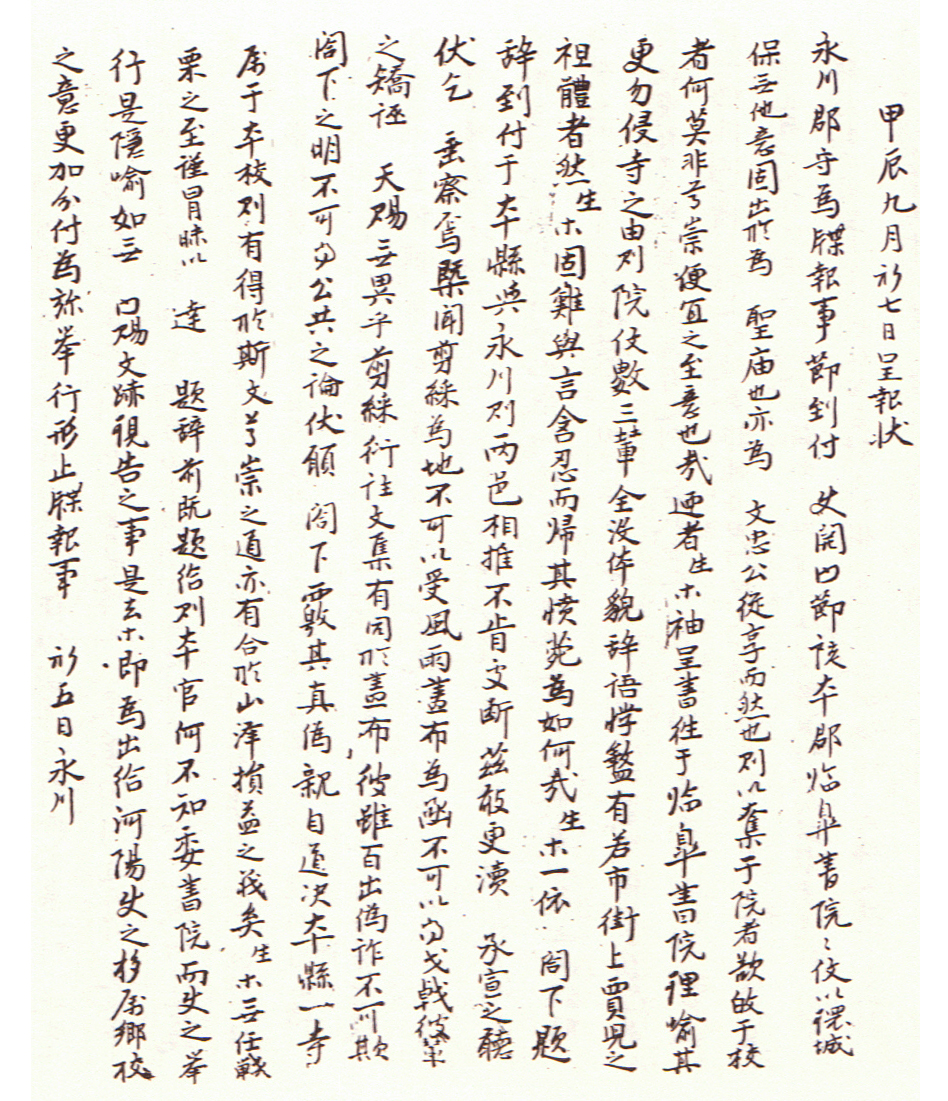 甲辰九月初七日呈報狀
永川郡守為牒報事節到付 史關內節該本郡臨皐書院、位以環城
保無他意固出於為 聖庙也亦為 文忠公從享而然也則以奪于院者歆敀于校
者何莫非尊崇便宜之至意也哉 迺者生等袖呈書往于臨皐書院理喻其
更勿侵寺之由則院仗數三輩全没体貌辞语悖盭有若市街上賈兒之
袒體者然生等固難與言含忍而歸其愤菀為如何哉生等一依 閤下題
辞到付于本縣與永川則兩邑相推不肯受断茲敢更瀆 承宣之聽
伏乞 垂察焉槩聞剪綵為地不可以受風雨畫布為函不可以當戈戟彼輩
之矯誣 天赐無異乎剪綵衍註文集有同於畫布彼雖百出偽诈不可欺
閤下之明不可當公共之論伏願 閤下覈其真偽親自退决本縣一寺
属于本校则有得於斯文尊崇之道亦有合於山澤損益之義矣生等無任戰
栗之至谨冒昧以 達 題辞前既題给则本官何不知委書院而史之举
行是隱喻如無 賜文跡視告之事是去等即為出给河陽史之移属鄉校
之意更加分付為旀举行形止牒報事 初五日永川